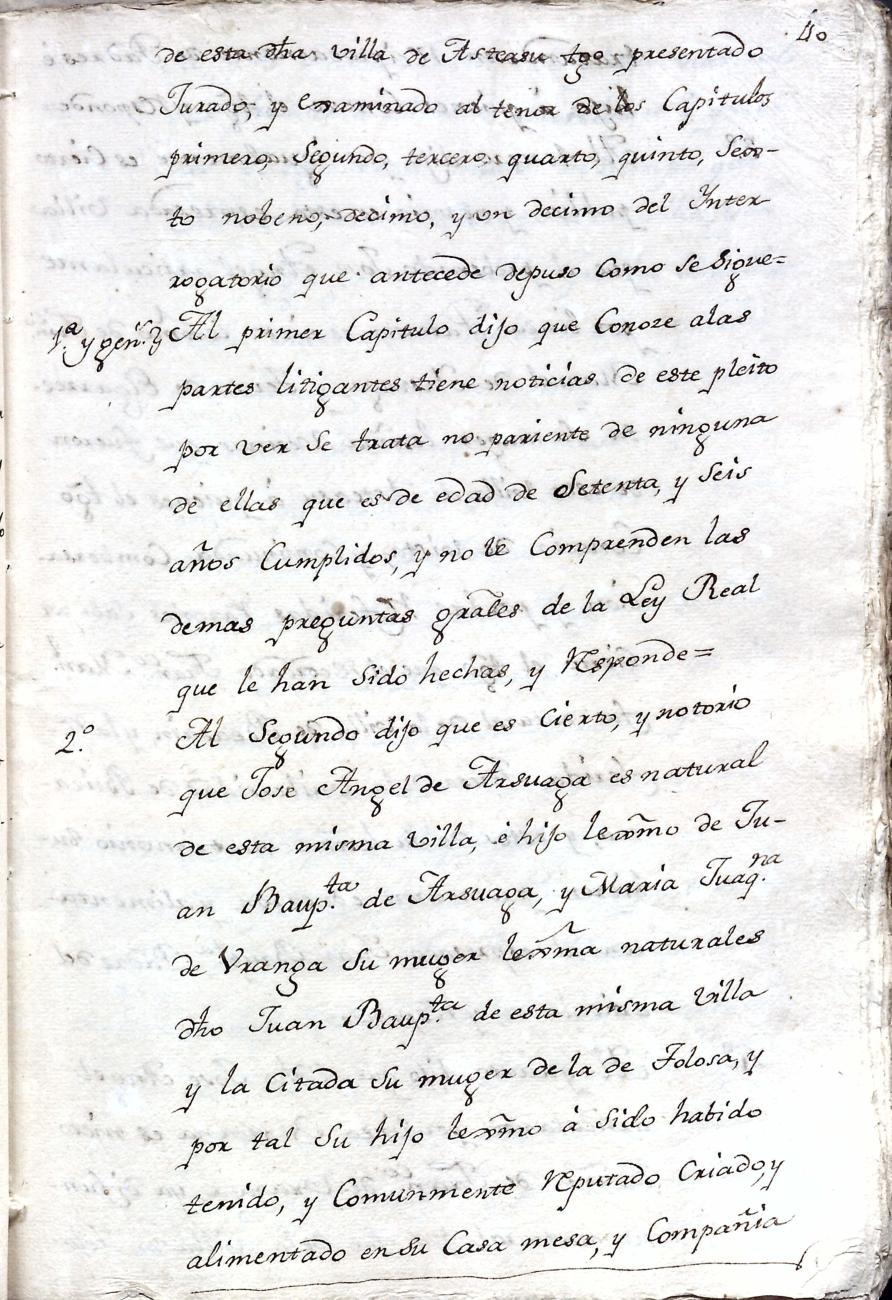 40
de esta dha villa de Asteasu tgo presentado
Jurado, y examinado al tenor de los Capitulos
primero, Segundo, tercero, quarto, quinto, Sex-
to nobeno, decimo, y on decimo del Ynter
rogatorio que antecede depuso Como se Sigue=
1ª y gen.s Al primer Capitulo dijo que Conoze alas
partes litigantes tiene noticias de este pleito
por ver se trata no pariente de ninguna
de ellas que es de edad de Setenta, y Seis
años Cumplidos, y no le Comprenden las
demas preguntas grales de la Ley Real
que le han Sido hechas, y Responde=
2.º Al Segundo dijo que es Cierto, y notorio
que Jose Angel de Arsuaga es natural
de esta misma villa, é hijo lexmo de Ju-
an Baup.ta de Arsuaga, y Maria Juaq.na
de Vranga Su muger lexma naturales
dho Juan Baup.ta de esta misma villa
y la Citada Su muger de la de Tolosa, y
por tal Su hijo lexmo á Sido habido
tenido, y Comunmente Reputado Criado, y
alimentado en su Casa mesa, y Compañia